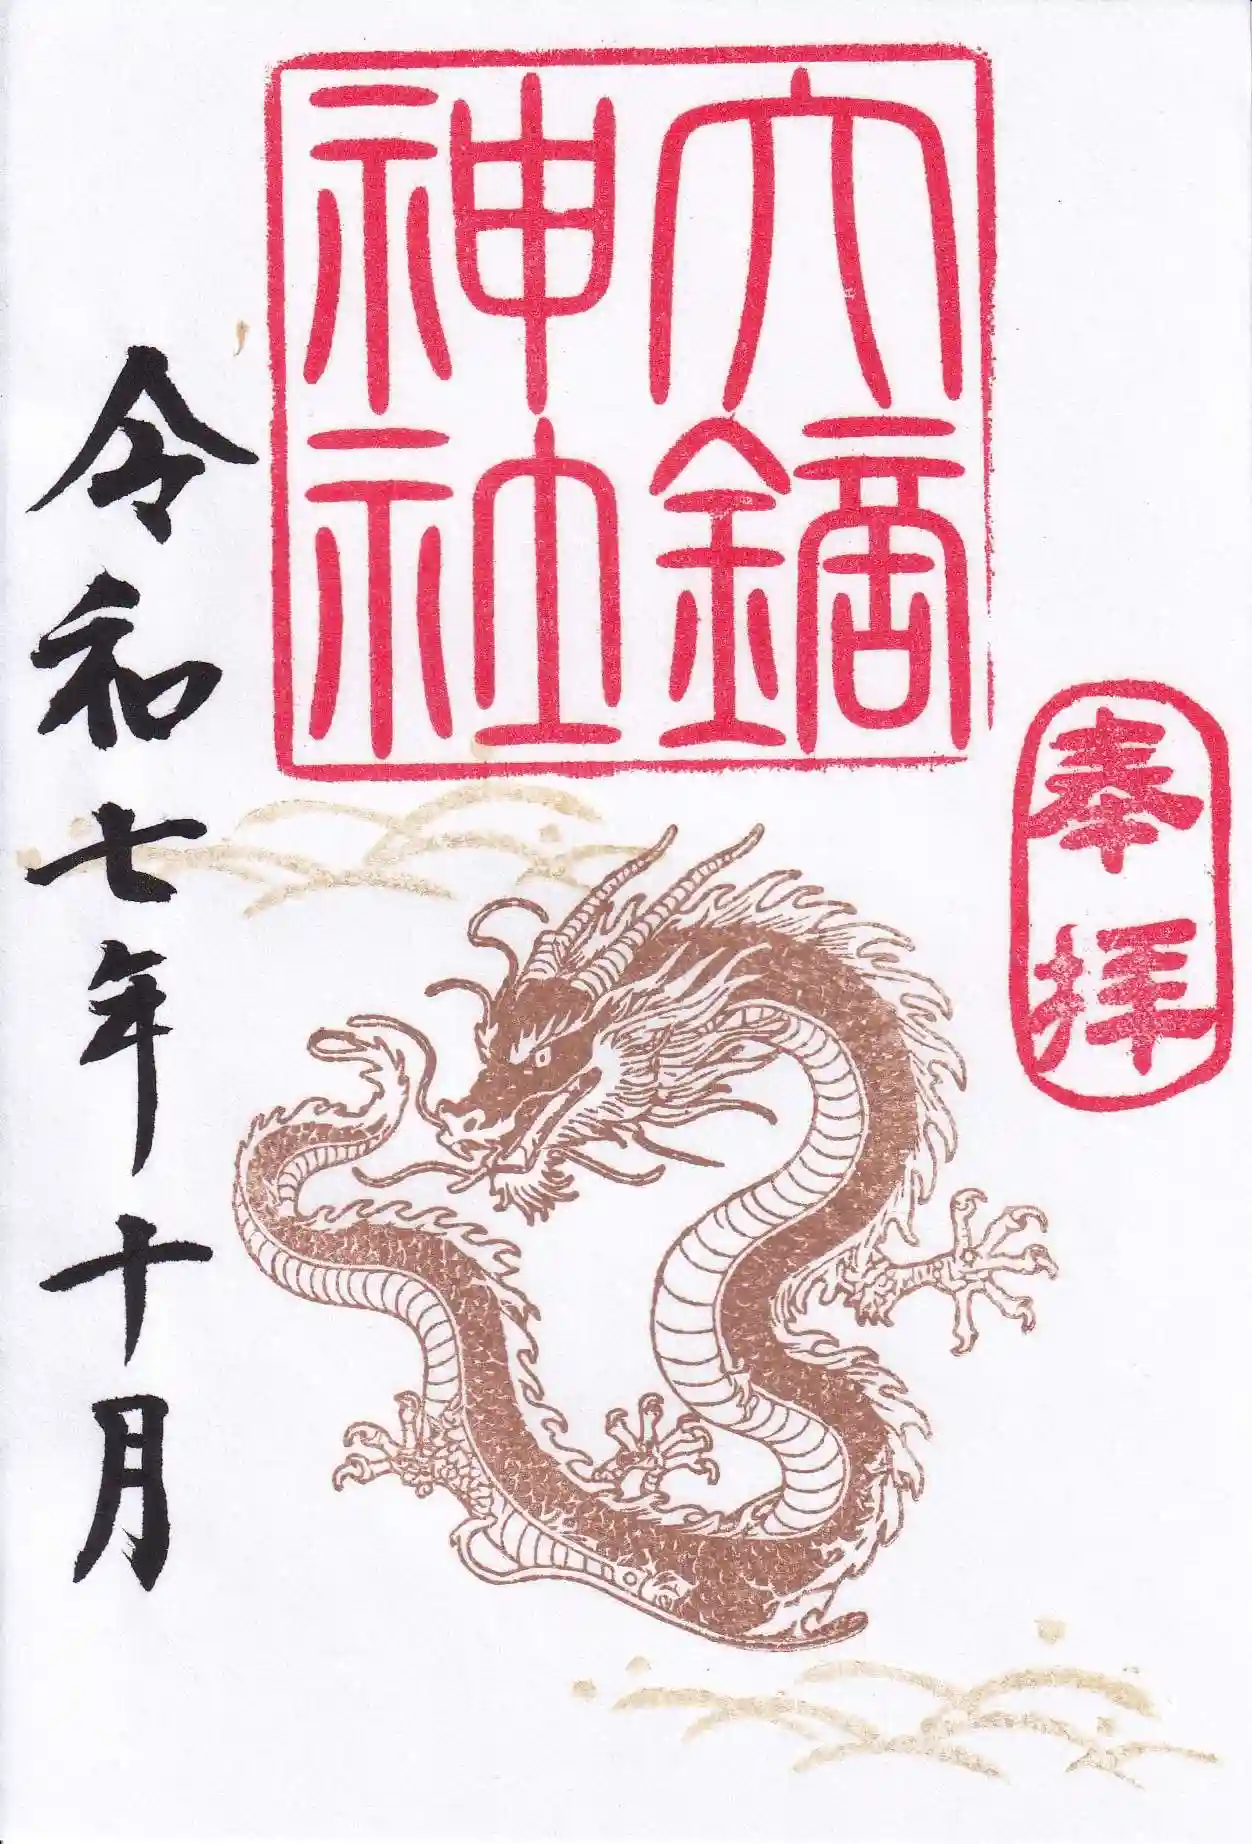 大鏑
神社
奉拝
令和七年十月